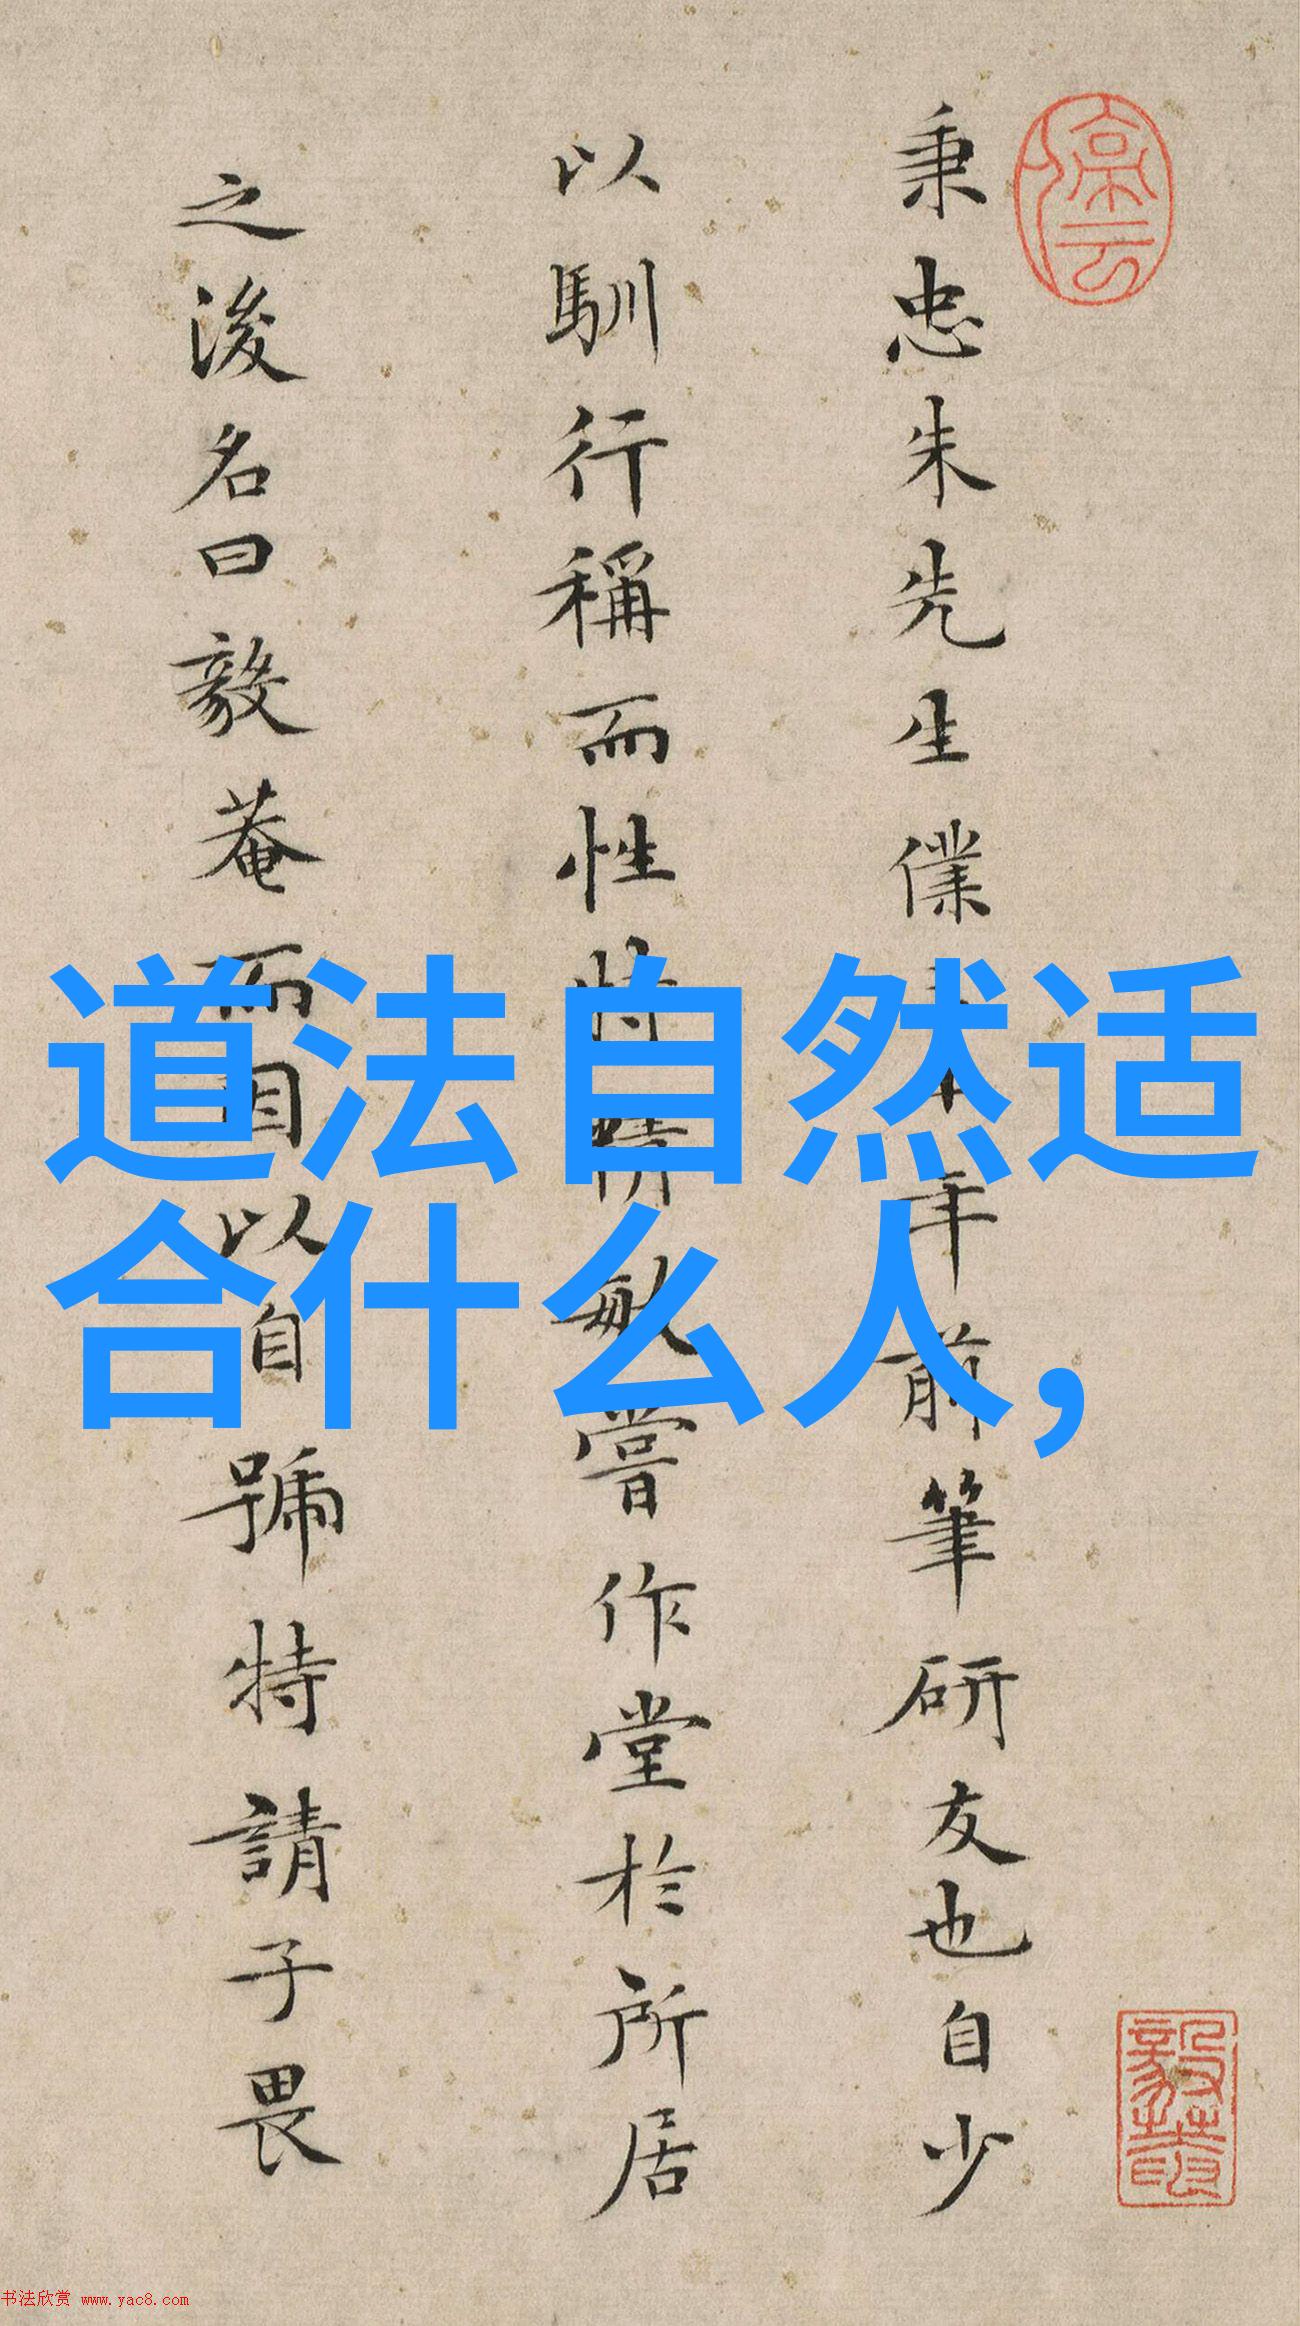 秉忠朱先生僕十年前筆研友也自少
以馴行稱而性特精敏嘗作堂於所居
之後名曰毅菴而因以自號特請予畏
道法自然适
合什么人,
书法欣赏 www.yac8.com